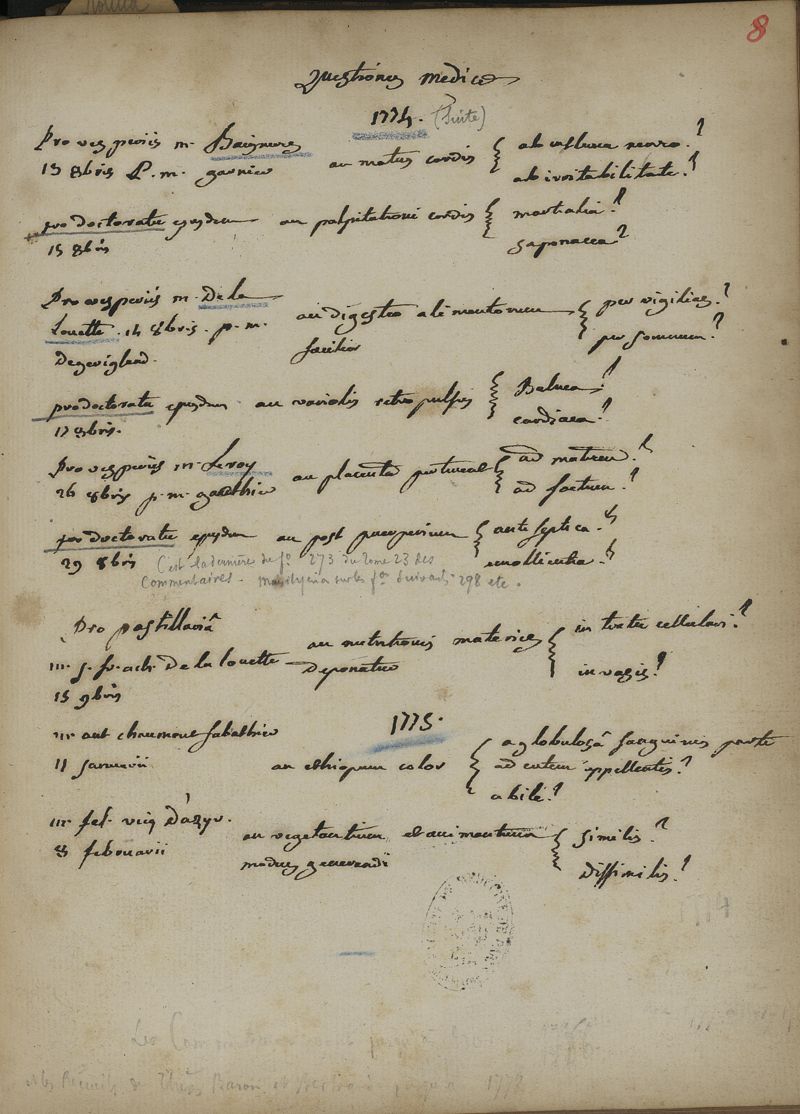 8
Questiones medicæ
1774. (Suite)
Pro vesperiis m. Baignere
13 8bris P. m. garnier
an motus cordis
ab influxu nervo.?
ab irritabilitate?
pro doctoratu ejusdem
15 8bris
an palpitationi cordis
martialia?
saponacea?
Pro vesperiis m. De la
Louette. 14 8bris. p. m.
an digestio alimentorum
facilior
per vigilias?
per somnum?
pro doctoratu ejusdem
17 8bris.
an variolis retropulsis
Balnea?
cardiaca?
Pro vesperiis m. Leroy
26 8bris p. m. gauthier
an placenta pertineat
ad matrem?
ad foetum?
pro doctoratu ejusdem
29 8bris
an post puerperium
antiseptica?
emollientia?
C'est la dernière du fo. 273 du Tome 23 des
Commentaires. Mais il y en a sur les fos. suivants 298 etc.
Pro pastillariâ
m. De la louette
15 9bris
an nutritionis materies
Deponatur
in textu cellulari?
in vasis?
1775.
m. ant chaumont sabathier
11 januarii
an ethiopum color
a globulosâ sanguinis parte
ad cutem appellentis?
a bile?
m. fel. vicq D'azyr.
8 februarii
an vegetantium et animantium
modus generandi
similis?
Dissimilis?